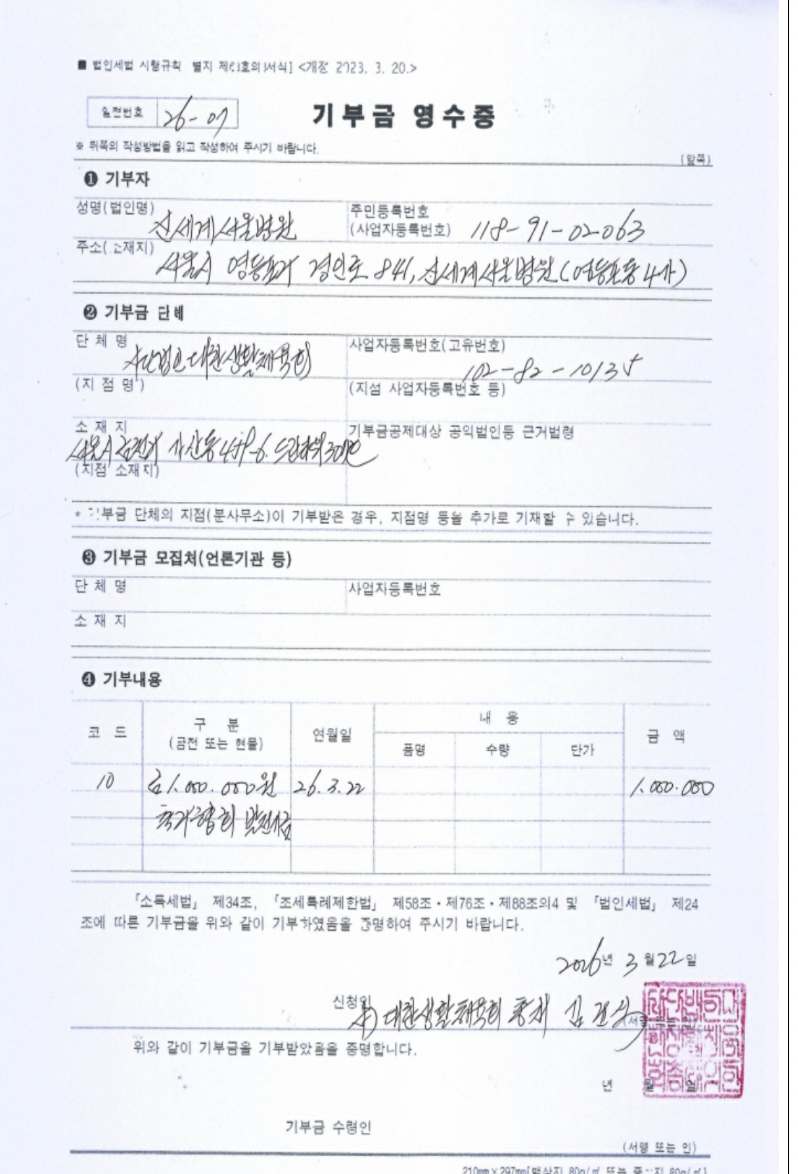 ■ 법인세법 시행규칙 별지 제63호의3서식] <개정 2023. 3. 20.>
일련번호 26-07
기부금 영수증
※ 뒤쪽의 작성방법을 읽고 작성하여 주시기 바랍니다.
(앞쪽)
❶ 기부자
성명(법인명) 신세계서울병원
주민등록번호
(사업자등록번호) 118-91-02063
주소(소재지) 서울시 영등포구 경인로 841, 신세계서울병원(영등포동4가)
❷ 기부금 단체
단 체 명 사단법인 대한생활체육회
사업자등록번호(고유번호) 102-82-10135
(지 점 명)
(지점 사업자등록번호 등)
소 재 지 서울시 금천구 가산동 459-6
기부금공제대상 공익법인등 근거법령
(지점 소재지)
* 기부금 단체의 지점(분사무소)이 기부받은 경우, 지점명 등을 추가로 기재할 수 있습니다.
❸ 기부금 모집처(언론기관 등)
단 체 명
사업자등록번호
소 재 지
❹ 기부내용
코 드
구 분
(금전 또는 현물)
연월일
내 용
품명
수량
단가
금 액
10
금1.000.000원
26.3.22
1.000.000
발전기금
「소득세법」 제34조, 「조세특례제한법」 제58조ㆍ제76조ㆍ제88조의4 및 「법인세법」 제24
조에 따른 기부금을 위와 같이 기부하였음을 증명하여 주시기 바랍니다.
2026년 3월 22일
신청인 사) 대한생활체육회 총재 김
(서명 또는 인)
위와 같이 기부금을 기부받았음을 증명합니다.
년 월 일
기부금 수령인
(서명 또는 인)
210mm×297mm[백상지 80g/㎡ 또는 중질지 80g/㎡]